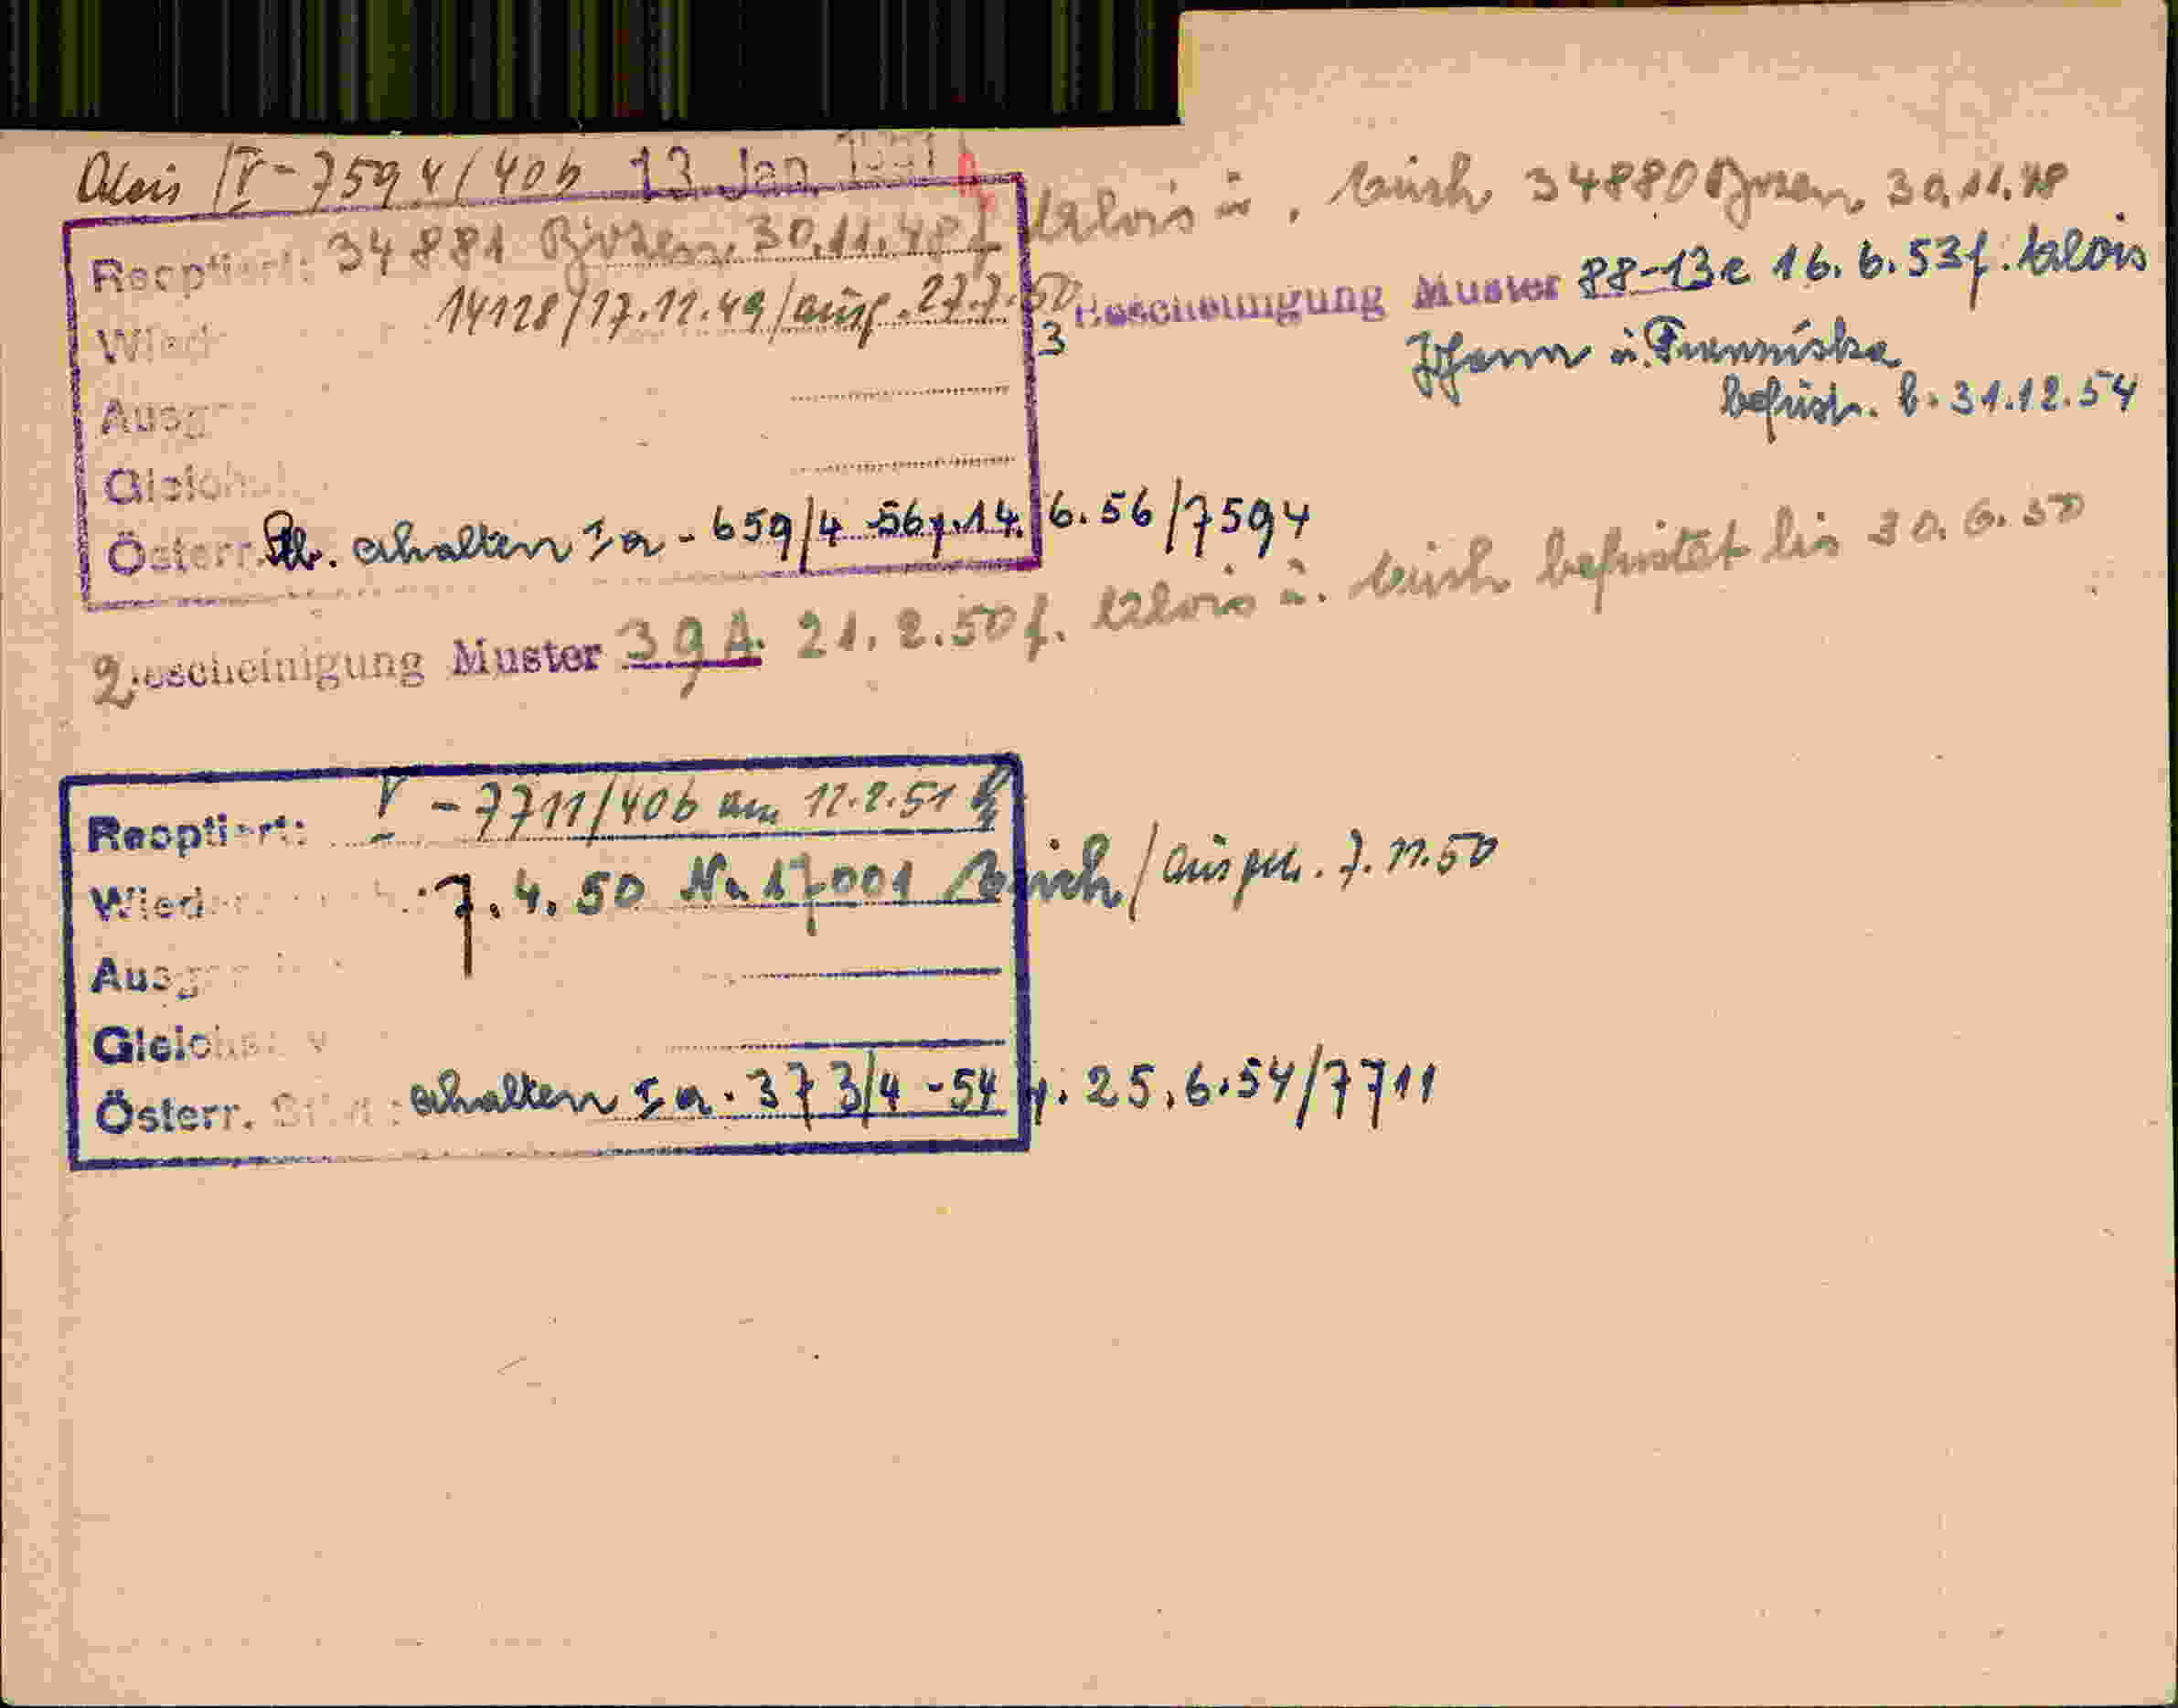 Alois IV-7594/40b 13. Jan. 1951
Reoptiert: 34881 Bozen 30.11.48 f. Alois u. Erich 34880 Bozen 30.11.48
Wied 14128/17.11.49/ausg. 27.7.50
3 Bescheinigung Muster 88-13e 16.6.53 f. Alois
Johann u. Franziska
befrist. b. 31.12.54
Ausg
Gleich
Österr. Stb. erhalten I a - 659/4 56 v. 14.6.56/7594
2 Bescheinigung Muster 39 A. 21.2.50 f. Alois u. Erich befristet bis 30.6.50
Reoptiert: V - 7711/40b am 12.2.51
Wied 7.4.50 Nr. 17001 Erich/ausgeh. 7.11.50
Ausg
Gleich
Österr. St. erhalten I a. 373/4 -54 v. 25.6.54/7711